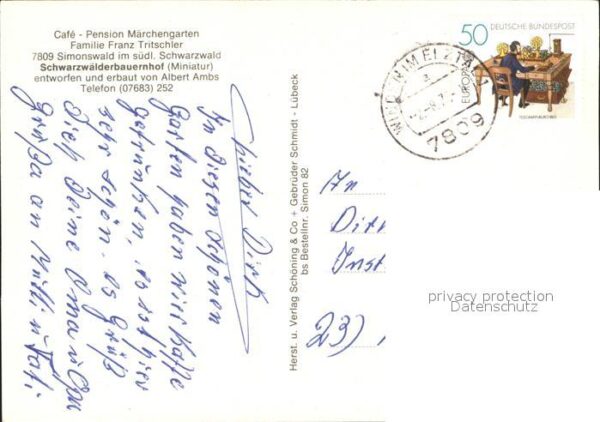 Café - Pension Märchengarten
Familie Franz Tritschler
7809 Simonswald im südl. Schwarzwald
Schwarzwälderbauernhof (Miniatur)
entworfen und erbaut von Albert Ambs
Telefon (07683) 252
Lieber Dirk
In diesen schönen
Garten haben wir Kaffe
getrunken, es ist hier
sehr schön. Es grüß
Dich Deine Oma u. Opa
Grüße an Mutti u. Vati
Herst. u. Verlag Schöning & Co + Gebrüder Schmidt - Lübeck
bs Bestellnr. Simon 82
50 DEUTSCHE BUNDESPOST
EUROPA
IM ELZTAL 1
a
7809
An
Dirk
23)
privacy protection
Datenschutz